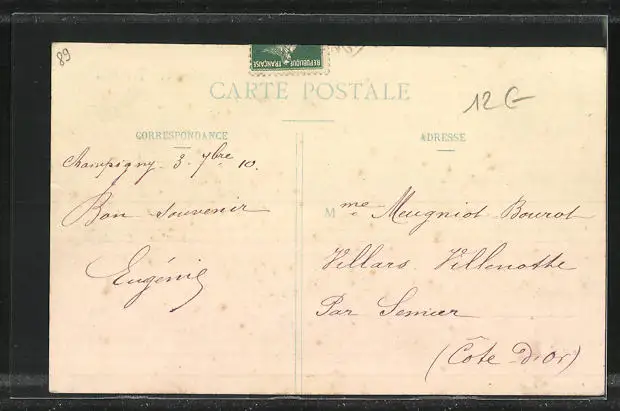 89
REPUBLIQUE FRANÇAISE
CARTE POSTALE
12 G
CORRESPONDANCE
Champigny 3. 7bre 10.
Bon Souvenir
Eugénie
ADRESSE
Mme Meugniot Bourot
Villars Villenotte
Par Semur
(Côte d'Or)